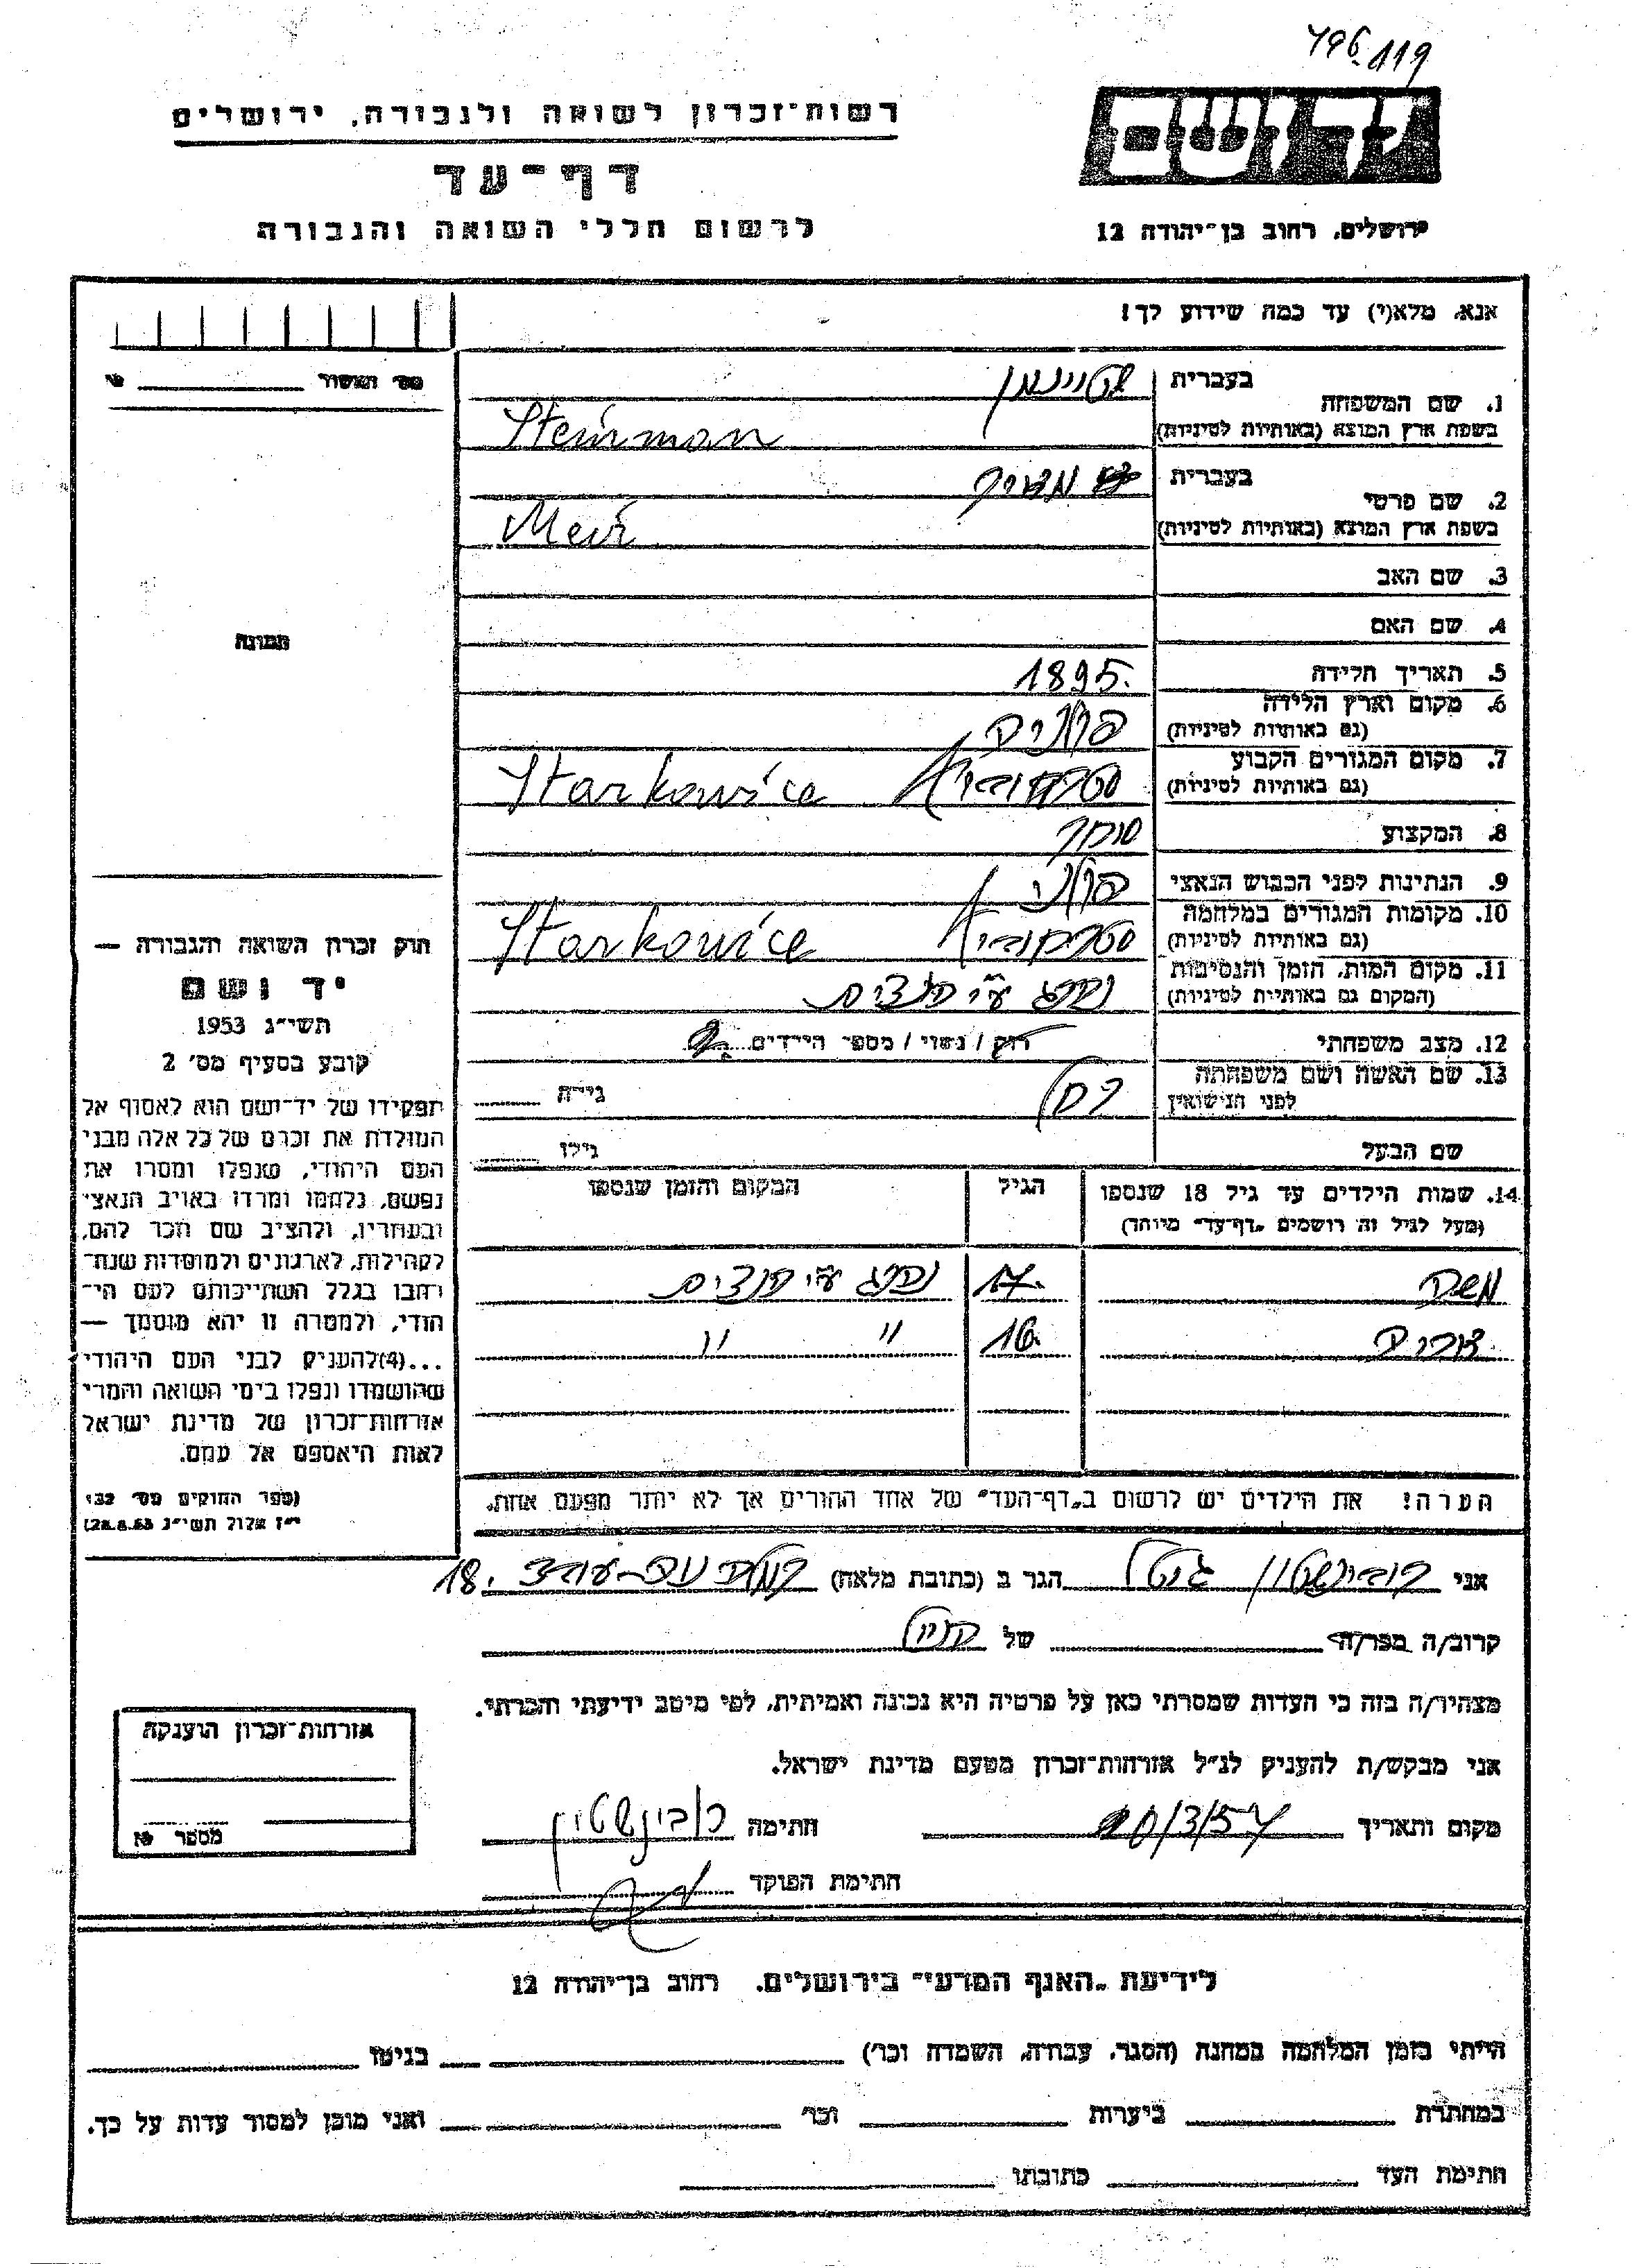 496.119
רשות־זכרון לשואה ולגבורה, ירושלים
יד ושם
דף־עד
לרשום חללי השואה והגבורה
ירושלים, רחוב בן־יהודה 12
אנא, מלא(י) עד כמה שידוע לך!
1. שם המשפחה
בעברית שטיינמן
בשפת ארץ המוצא (באותיות לטיניות) Steinman
2. שם פרטי
בעברית
בשפת ארץ המוצא (באותיות לטיניות) Meir
3. שם האב
4. שם האם
5. תאריך הלידה 1895.
6. מקום וארץ הלידה
(גם באותיות לטיניות) פולניה
7. מקום המגורים הקבוע
(גם באותיות לטיניות) Starkowice
8. המקצוע סוחר
9. הנתינות לפני הכבוש הנאצי פולני
10. מקומות המגורים במלחמה
(גם באותיות לטיניות) Starkowice
11. מקום המות, הזמן והנסיבות
(המקום גם באותיות לטיניות) נהרג ע"י הנאצים
12. מצב משפחתי רווק / נשוי / מספר הילדים 2
13. שם האשה ושם משפחתה
לפני הנישואין גילה
שם הבעל גילו
14. שמות הילדים עד גיל 18 שנספו
(מעל לגיל זה רושמים „דף־עד” מיוחד)
הגיל
המקום והזמן שנספו
משה 17. נהרג ע"י הנאצים
16. " "
הערה! את הילדים יש לרשום ב„דף־העד” של אחד ההורים אך לא יותר מפעם אחת.
מס' האשור №
תמונה
חוק זכרון השואה והגבורה —
יד ושם
תשי״ג 1953
קובע בסעיף מס׳ 2
תפקידו של יד־ושם הוא לאסוף אל
המולדת את זכרם של כל אלה מבני
העם היהודי, שנפלו ומסרו את
נפשם, נלחמו ומרדו באויב הנאצי
ובעוזריו, ולהציב שם וזכר להם,
לקהילות, לארגונים ולמוסדות שנח־
רבו בגלל השתייכותם לעם הי־
הודי, ולמטרה זו יהא מוסמך —
...(4)להעניק לבני העם היהודי
שהושמדו ונפלו בימי השואה והמרי
אזרחות־זכרון של מדינת ישראל
לאות היאספם אל עמם.
(ספר החוקים מס' 132
י״ז אלול תשי״ג 28.8.53)
אני רובינשטיין הגר ב (כתובת מלאה) 18.
קרוב/ה מכר/ה של
מצהיר/ה בזה כי העדות שמסרתי כאן על פרטיה היא נכונה ואמיתית, לפי מיטב ידיעתי והכרתי.
אני מבקש/ת להעניק לנ״ל אזרחות־זכרון מטעם מדינת ישראל.
מקום ותאריך 20/3/57 חתימה רובינשטיין
חתימת הפוקד
אזרחות־זכרון הוענקה
מספר №
לידיעת „האגף המדעי” בירושלים, רחוב בן־יהודה 12
הייתי בזמן המלחמה במחנה (הסגר, עבודה, השמדה וכו׳) בגיטו
במחתרת ביערות וכו׳ ואני מוכן למסור עדות על כך.
חתימת העד כתובתו